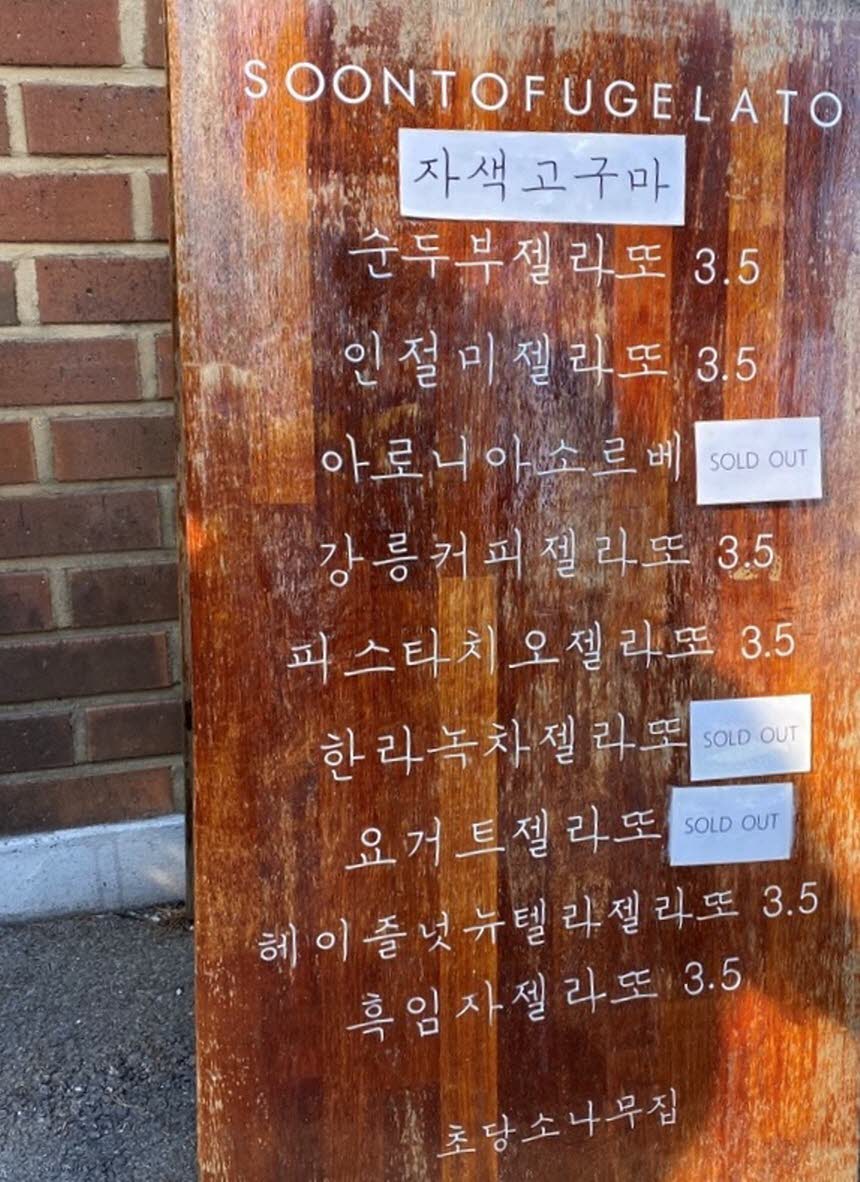 SOONTOFUGELATO
자색고구마
순두부젤라또 3.5
인절미젤라또 3.5
아로니아소르베 SOLD OUT
강릉커피젤라또 3.5
피스타치오젤라또 3.5
한라녹차젤라또 SOLD OUT
요거트젤라또 SOLD OUT
헤이즐넛뉴텔라젤라또 3.5
흑임자젤라또 3.5
초당소나무집